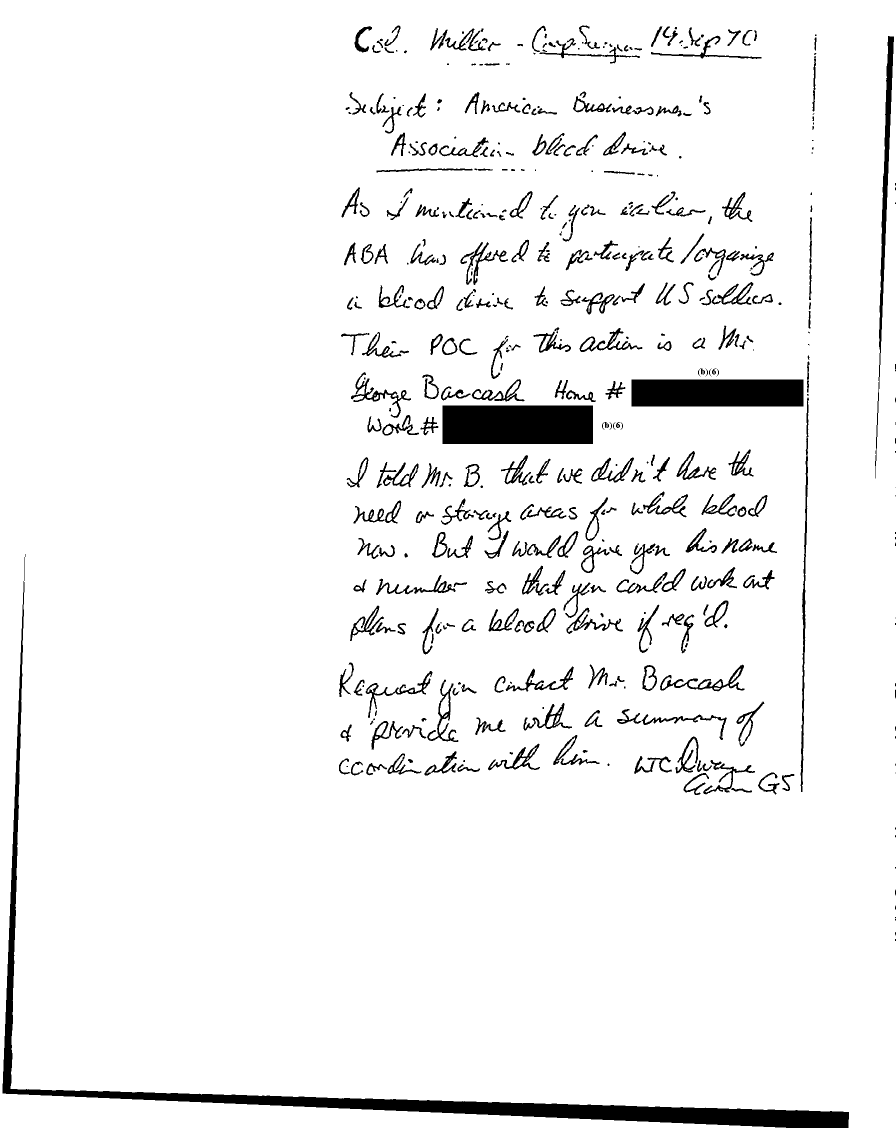 Col. Miller - Corp Surgeon 14 Sep 90
Subject: American Businessmen's
Association blood drive.
As I mentioned to you earlier, the
ABA has offered to participate/organize
a blood drive to support US soldiers.
Their POC for this action is a Mr.
(b)(6)
George Baccash Home #
Work # (b)(6)
I told Mr. B. that we didn't have the
need or storage areas for whole blood
now. But I would give you his name
& number so that you could work out
plans for a blood drive if req'd.
Request you contact Mr. Baccash
& provide me with a summary of
coordination with him. LTC Dwayne
G5